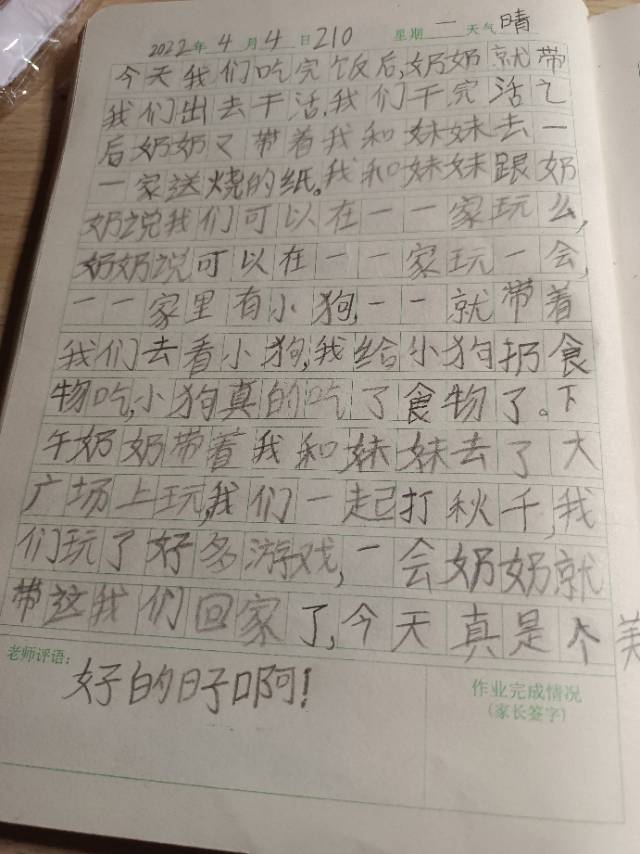 2022年4月4日210 星期一天气晴
今天我们吃完饭后,奶奶就带
我们出去干活,我们干完活之
后奶奶又带着我和妹妹去一
一家送烧的纸。我和妹妹跟奶
奶说我们可以在一一家玩么,
奶奶说可以在一一家玩一会,
一一家里有小狗,一一就带着
我们去看小狗,我给小狗扔食
物吃,小狗真的吃了食物了。下
午奶奶带着我和妹妹去了大
广场上玩,我们一起打秋千,我
们玩了好多游戏,一会奶奶就
带这我们回家了,今天真是个美
老师评语:
好的日子啊!
作业完成情况
(家长签字)